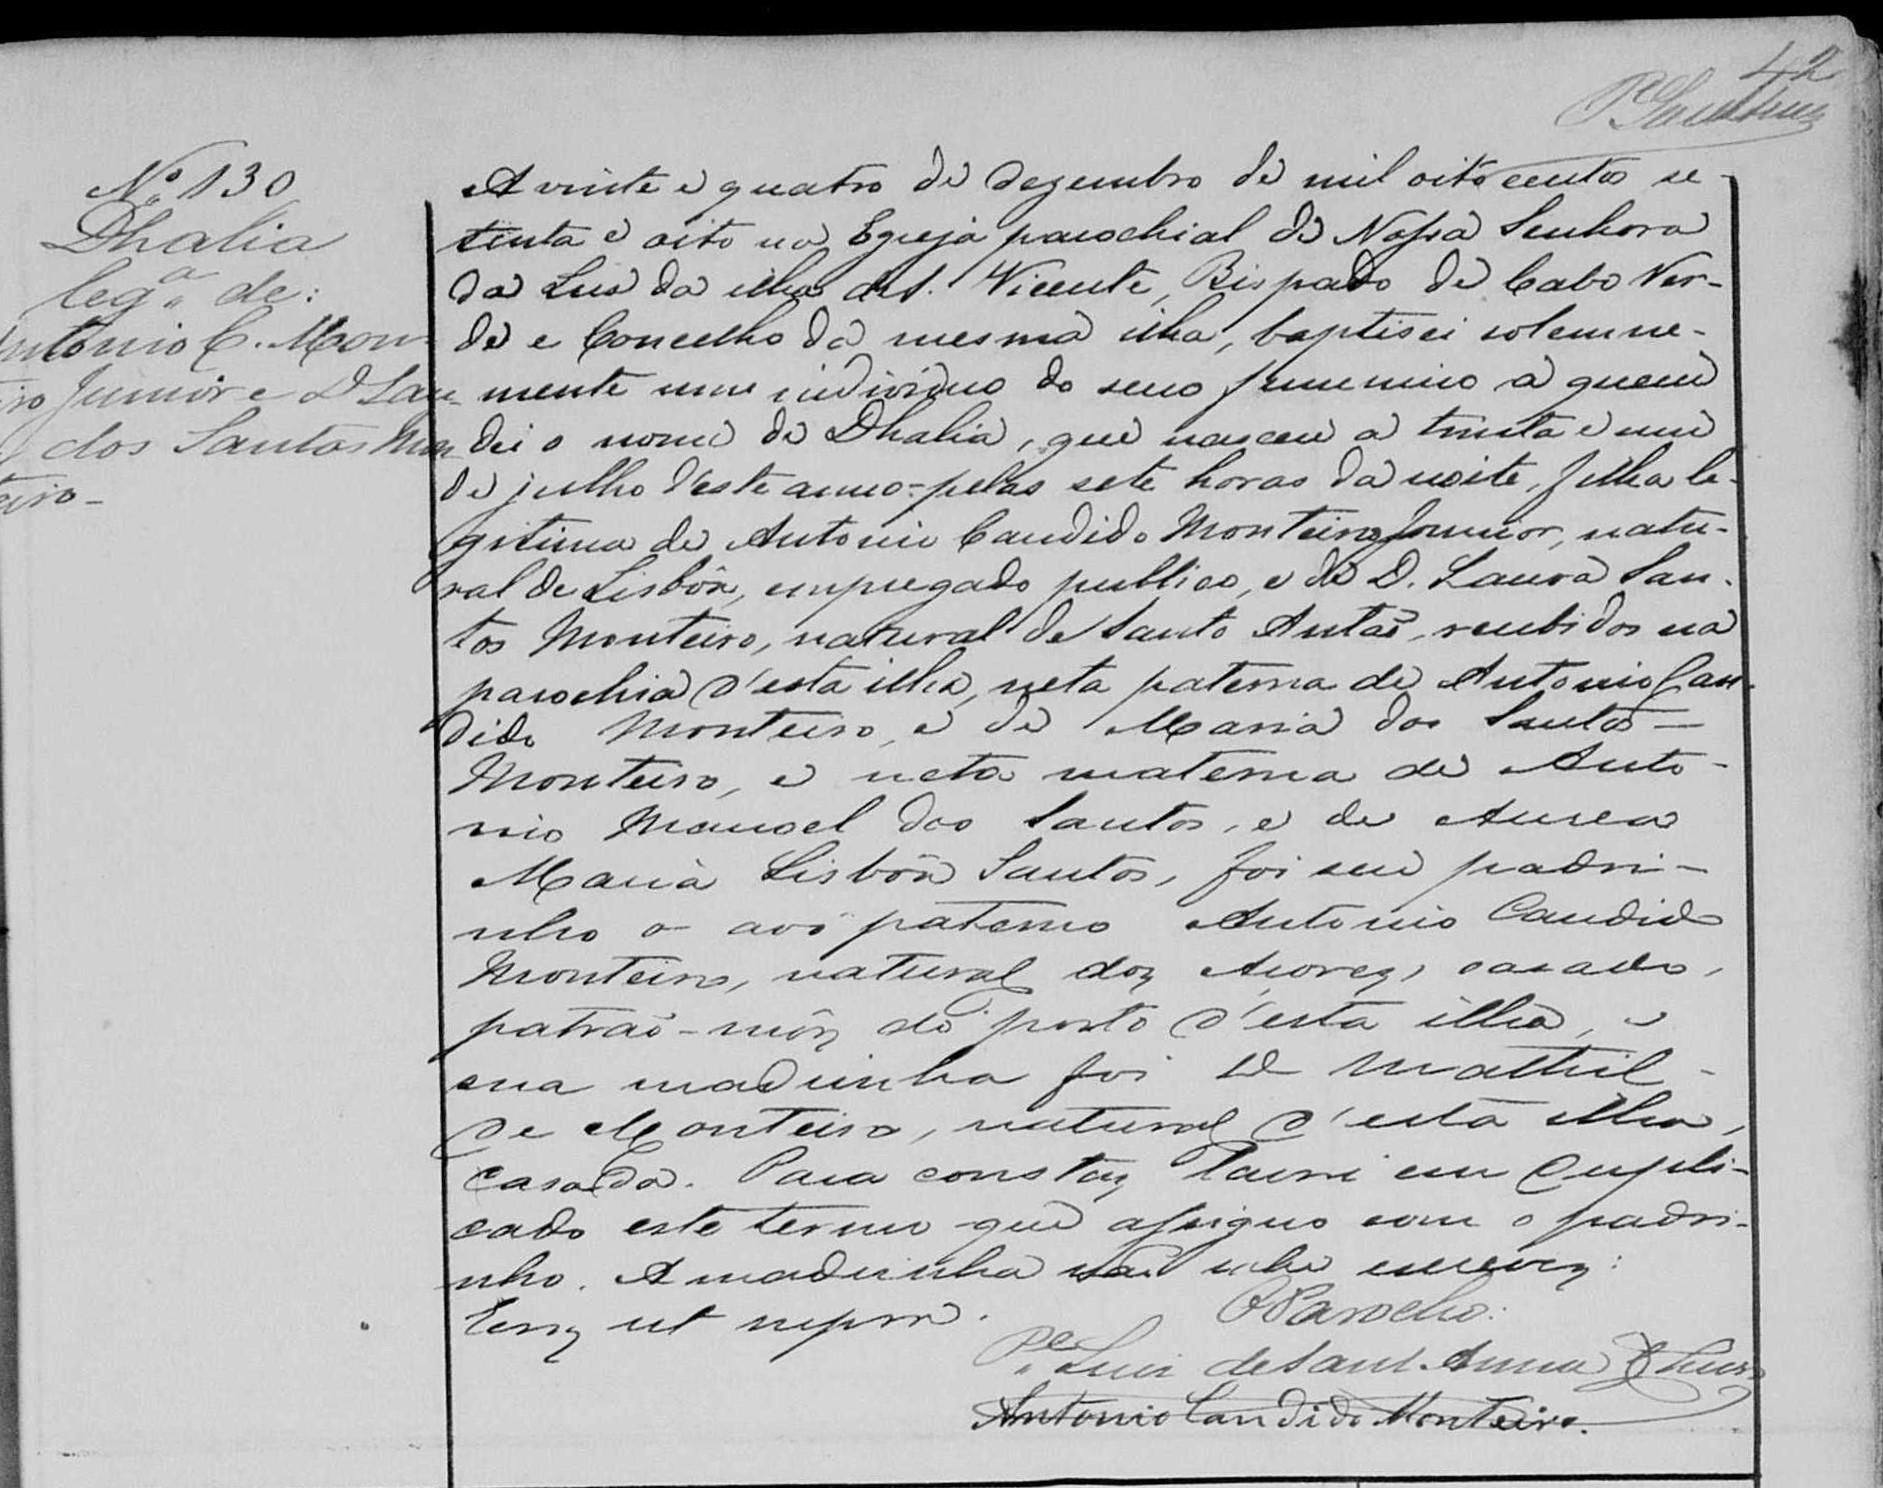 42
Nº 130
Dhalia
leg.ª de:
Antonio C. Mon-
teiro Junior e D Lau-
dos Santos Mon
teiro-
A vinte e quatro de Dezembro de mil oito centos se-
tenta e oito na Egreja parochial de Nossa Senhora
da Luz da ilha de S. Vicente, Bispado de Cabo Ver-
de e Concelho da mesma ilha, baptisei solemne-
mente um individuo do sexo femenino a quem
dei o nome de Dhalia, que nasceu a trinta e um
de julho d'este anno pelas sete horas da noite, filha le-
gitima de Antonio Candido Monteiro Junior, natu-
ral de Lisbôa, empregado publico, e de D. Laura San-
tos Monteiro, natural de Santo Antão, recebidos na
parochia d'esta ilha, neta paterna de Antonio Can-
dido Monteiro, e de Maria dos Santos
Monteiro, e neta materna de Anto-
nio Manoel dos Santos, e de Aurea
Maria Lisbôa Santos, foi seu padri-
nho o avô paterno Antonio Candido
Monteiro, natural dos Açores, casado,
patrão-mór do porto d'esta ilha, e
sua madrinha foi D Mathil-
de Monteiro, natural d'esta ilha,
casada. Para constar lavrei em dupli-
cado este termo que assigno com o padri-
nho. A madrinha não sabe escrever:
Era ut supra.
O Parocho:
P.e Luis de Sant Anna
Antonio Candido Monteiro.